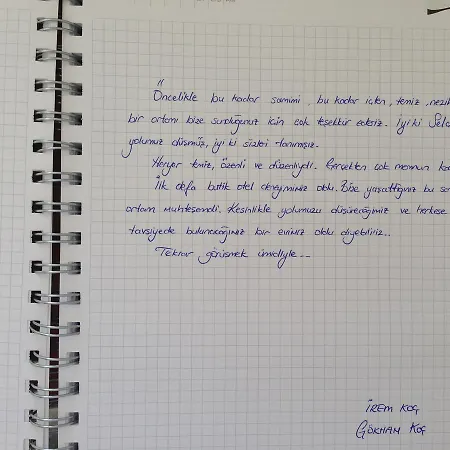 Öncelikle bu kadar samimi, bu kadar içten, temiz, nezih
bir ortamı bize sunduğunuz için çok teşekkür ederiz. İyi ki
yolumuz düşmüş, iyi ki sizleri tanımışız.
Heryer temiz, özenli ve düzenliydi. Gerçekten çok memnun
İlk defa butik otel deneyimimiz oldu. Bize yaşattığınız bu
ortam muhteşemdi. Kesinlikle yolumuzu düşüreceğimiz ve herkese
tavsiyede bulunacağımız bir evimiz oldu diyebiliriz..
Tekrar görüşmek ümidiyle...
İREM KOÇ
GÖKHAN KOÇ